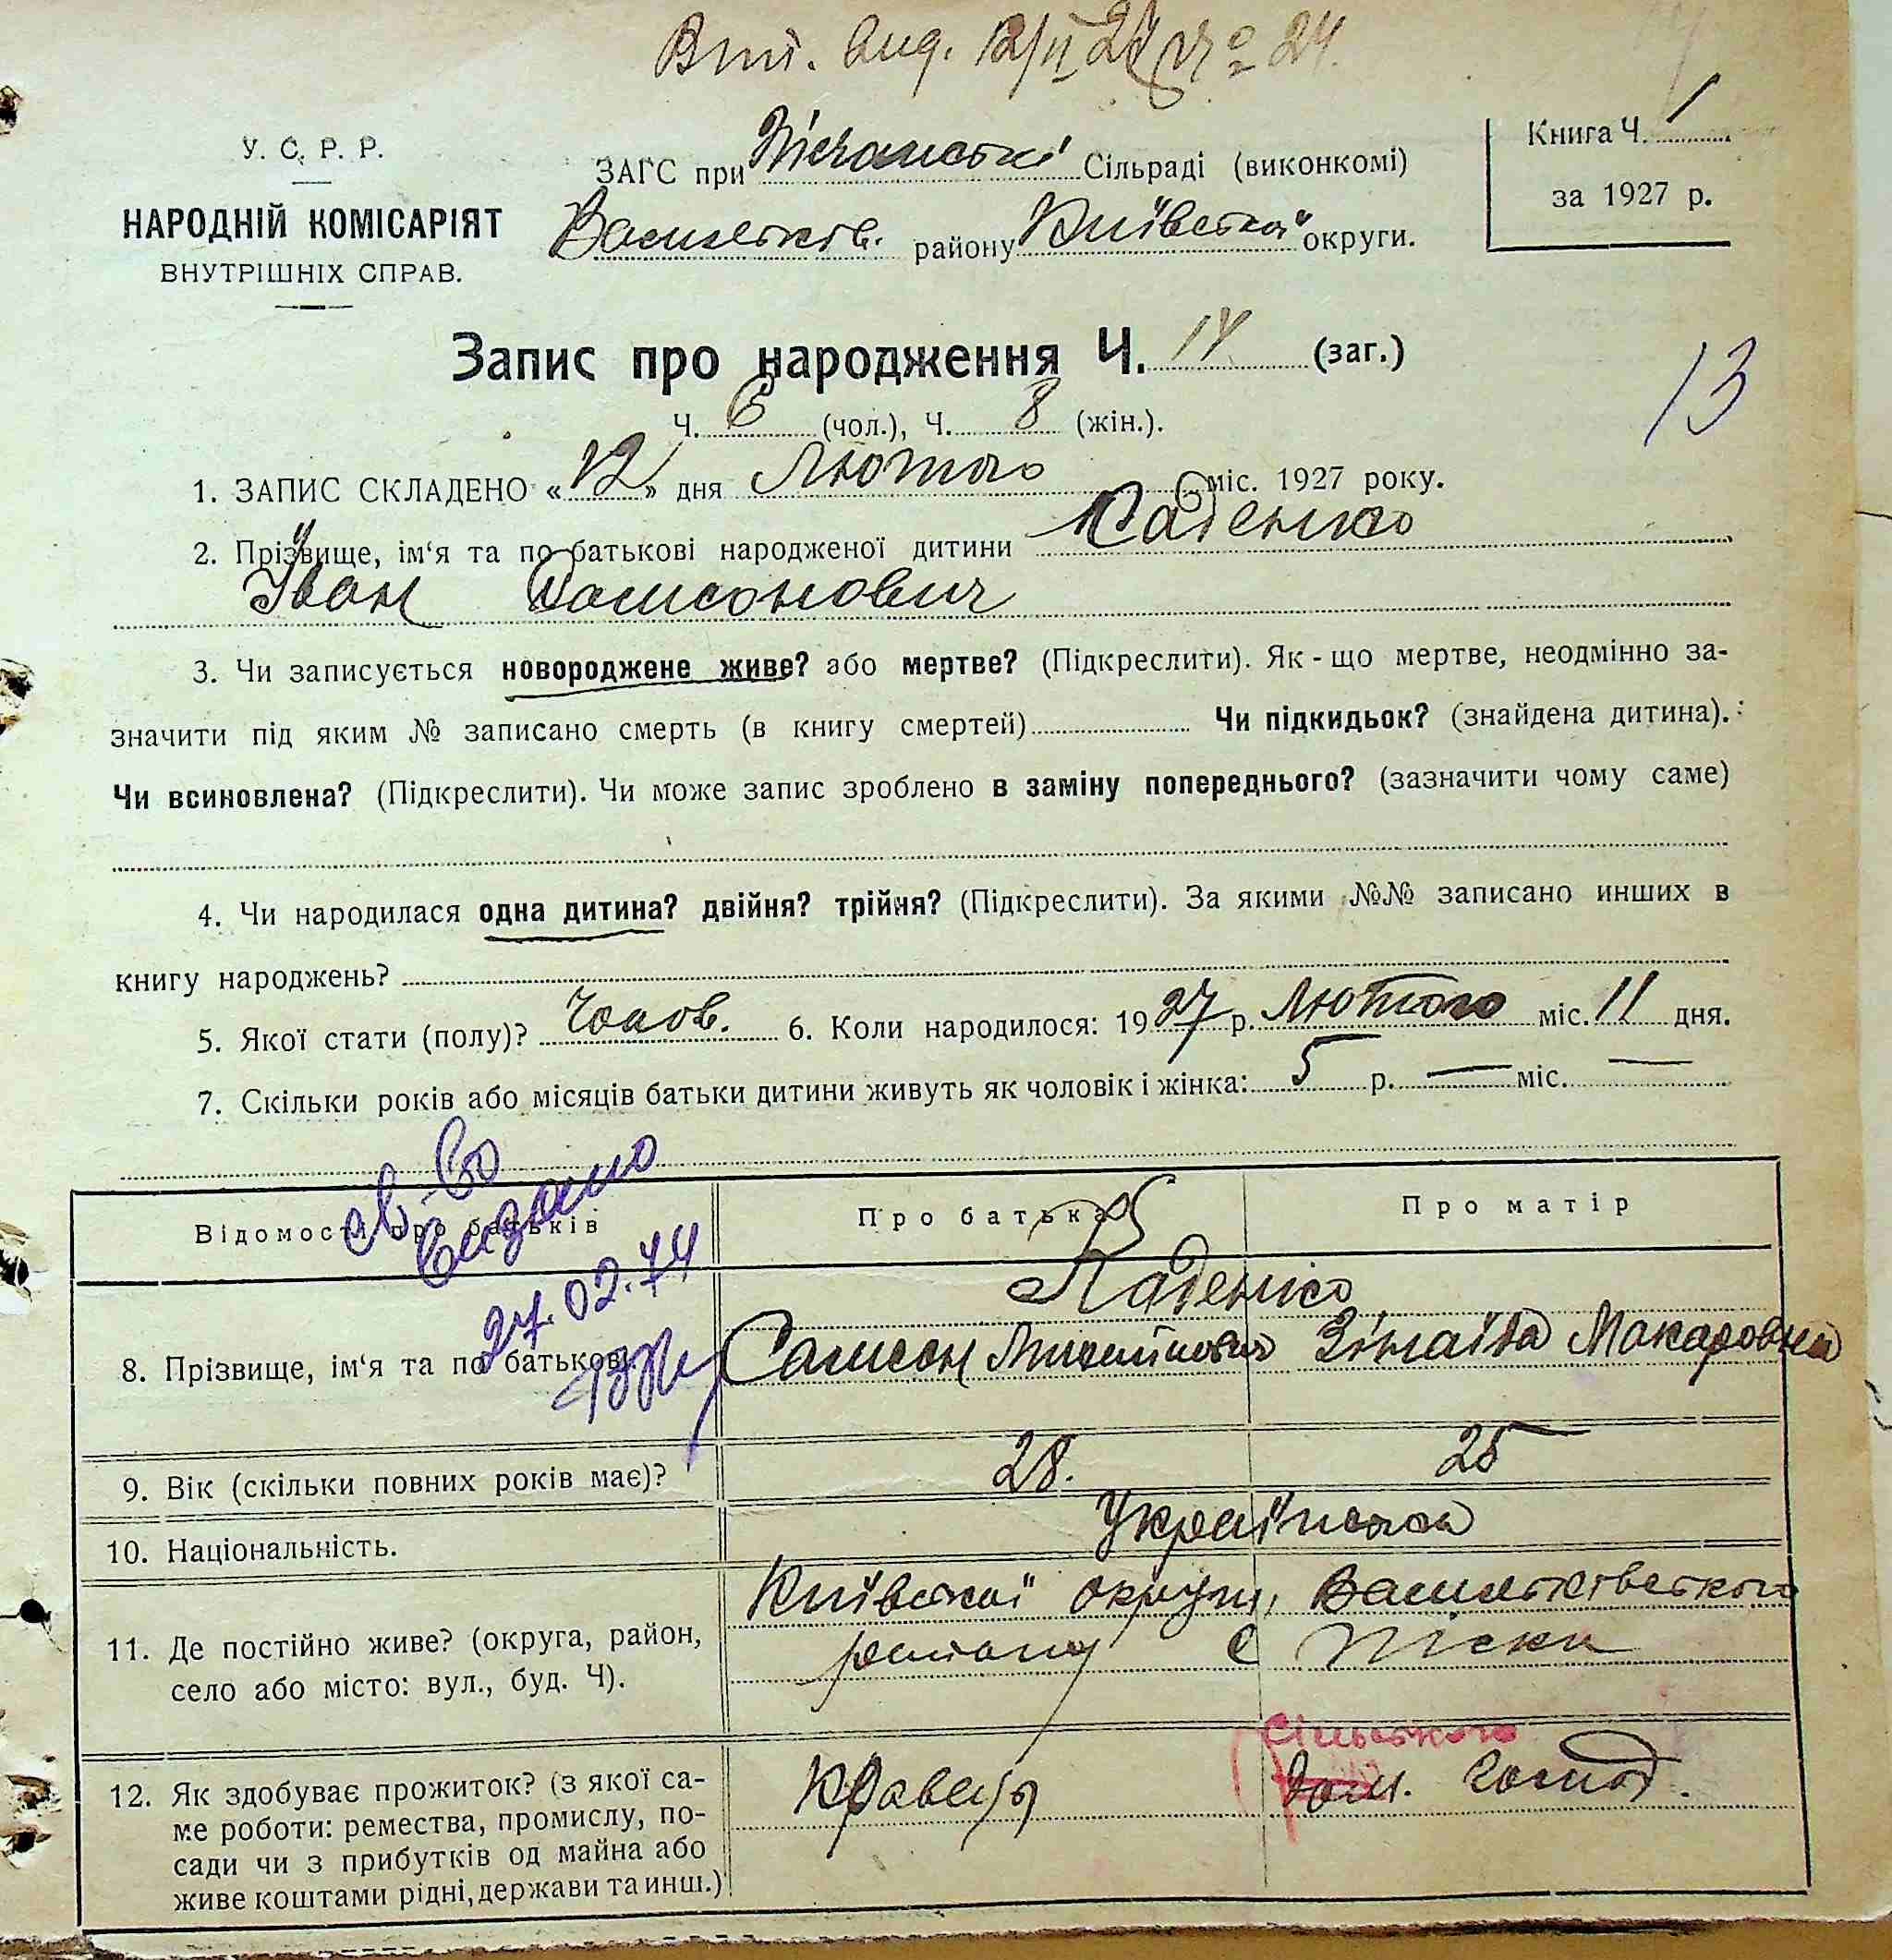 Вип. вид. 12/II 27 № 24.
У. С. Р. Р.
НАРОДНІЙ КОМІСАРІЯТ
ВНУТРІШНІХ СПРАВ.
ЗАГС при Піщанські Сільраді (виконкомі)
Васильків. району Київської округи.
Книга Ч. 1
за 1927 р.
Запис про народження Ч. 14 (заг.)
13
Ч. 6 (чол.), Ч. 8 (жін.).
1. ЗАПИС СКЛАДЕНО «12» дня Лютого міс. 1927 року.
2. Прізвище, ім‘я та по батькові народженої дитини
Іван Самсонович
3. Чи записується новороджене живе? або мертве? (Підкреслити). Як-що мертве, неодмінно за-
значити під яким № записано смерть (в книгу смертей) Чи підкидьок? (знайдена дитина).
Чи всиновлена? (Підкреслити). Чи може запис зроблено в заміну попереднього? (зазначити чому саме)
4. Чи народилася одна дитина? двійня? трійня? (Підкреслити). За якими №№ записано инших в
книгу народжень?
5. Якої стати (полу)? Чолов. 6. Коли народилося: 1927 р. Лютого міс. 11 дня.
7. Скільки років або місяців батьки дитини живуть як чоловік і жінка: 5 р. — міс. —
св-во
видано
27.02.74
Відомості про батьків Про батька Про матір
8. Прізвище, ім‘я та по батькові
Самсон Зінаїда Макаровна
9. Вік (скільки повних років має)? 28. 25
10. Національність. Українська
11. Де постійно живе? (округа, район,
село або місто: вул., буд. Ч).
Київської округи, Васильківського
району с Піски
12. Як здобуває прожиток? (з якої са-
ме роботи: ремества, промислу, по-
сади чи з прибутків од майна або
живе коштами рідні, держави та инш.)
Кравець
сільського
дом. господ.